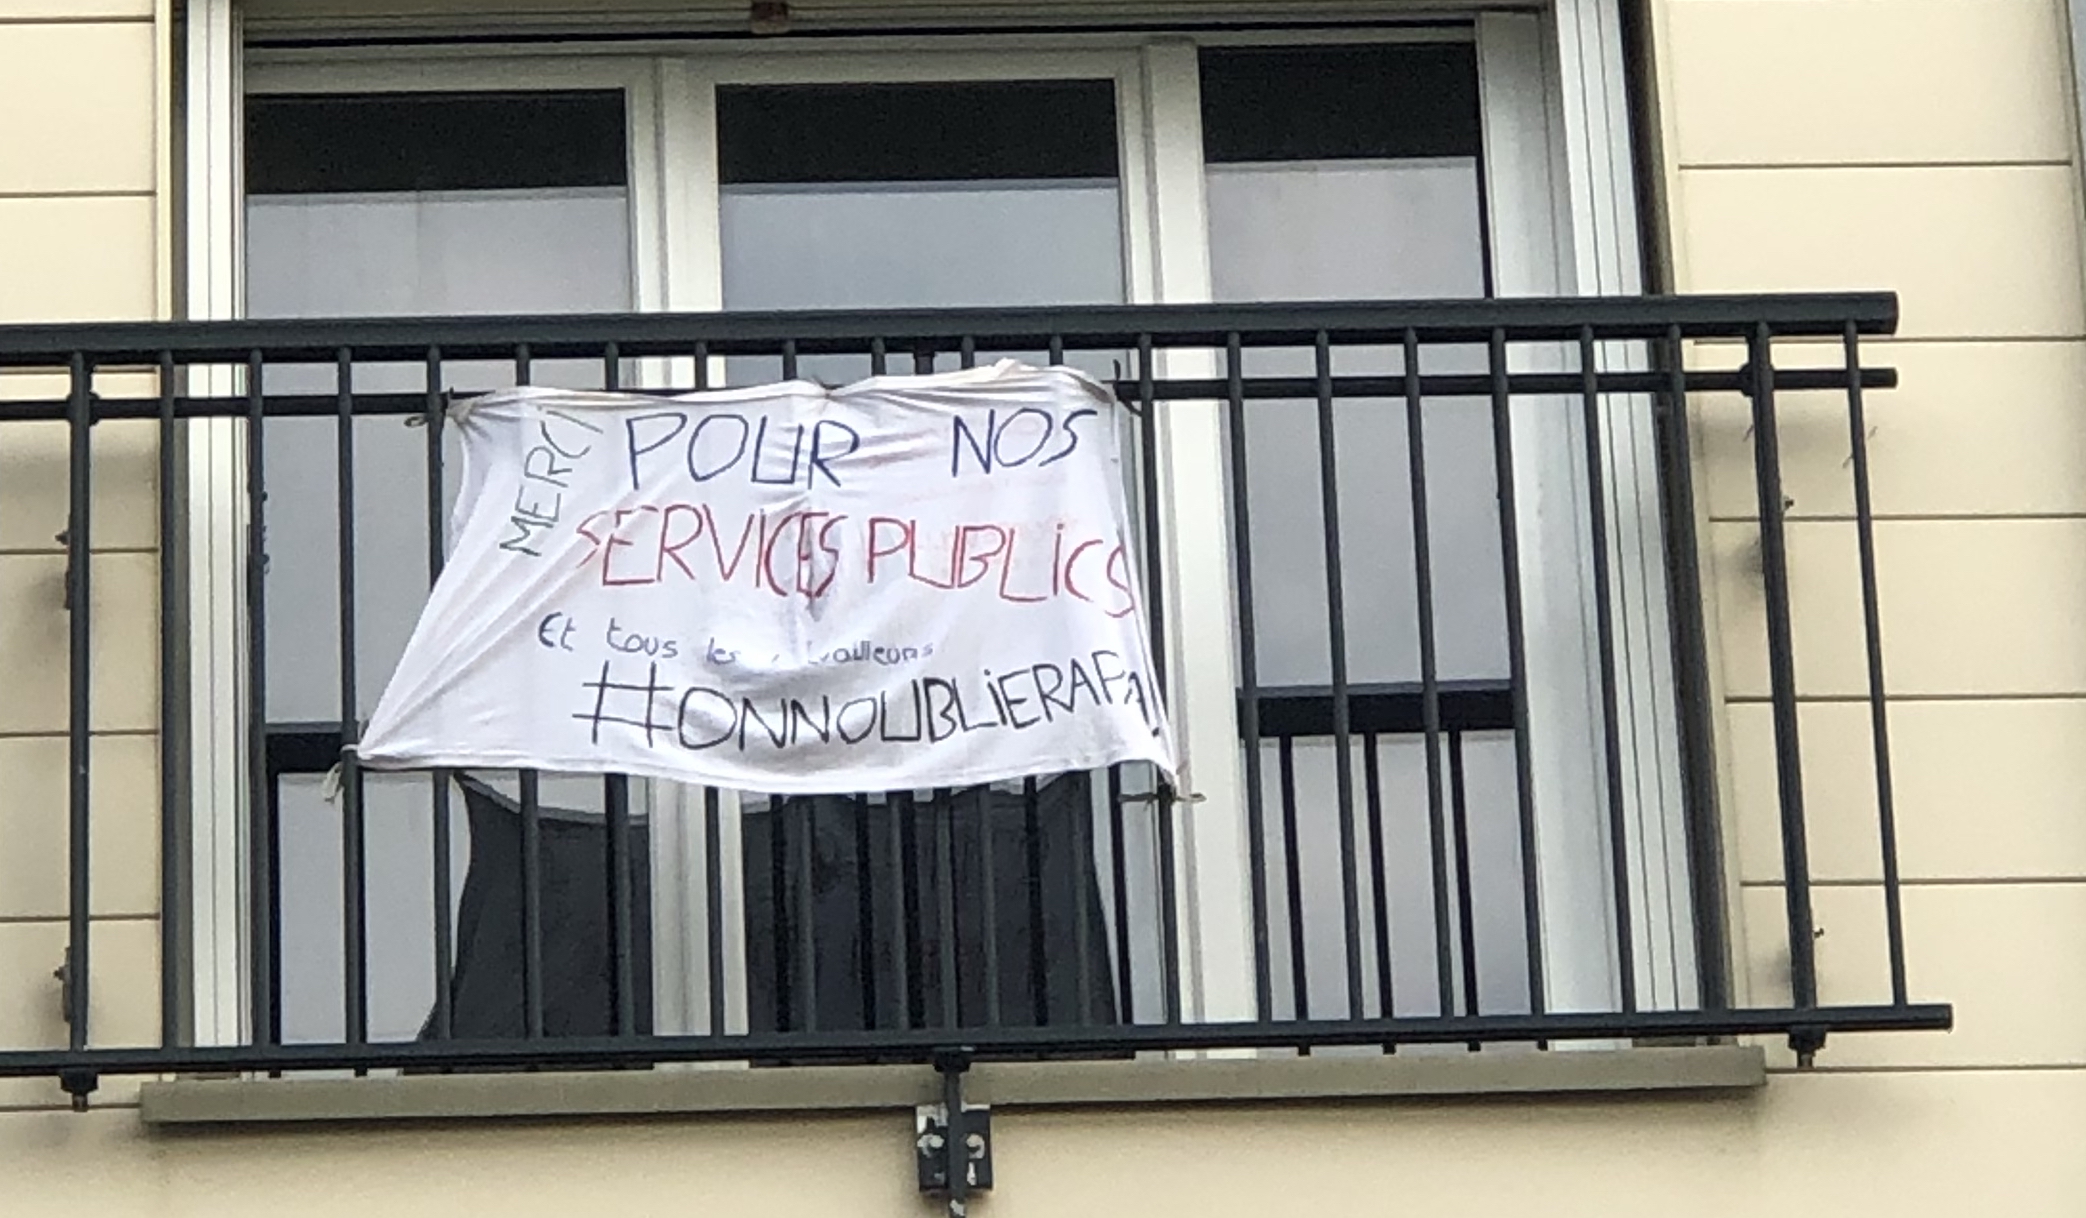 MERCI
POUR NOS
SERVICES PUBLICS
Et tous les
#ONNOUBLIERAPA